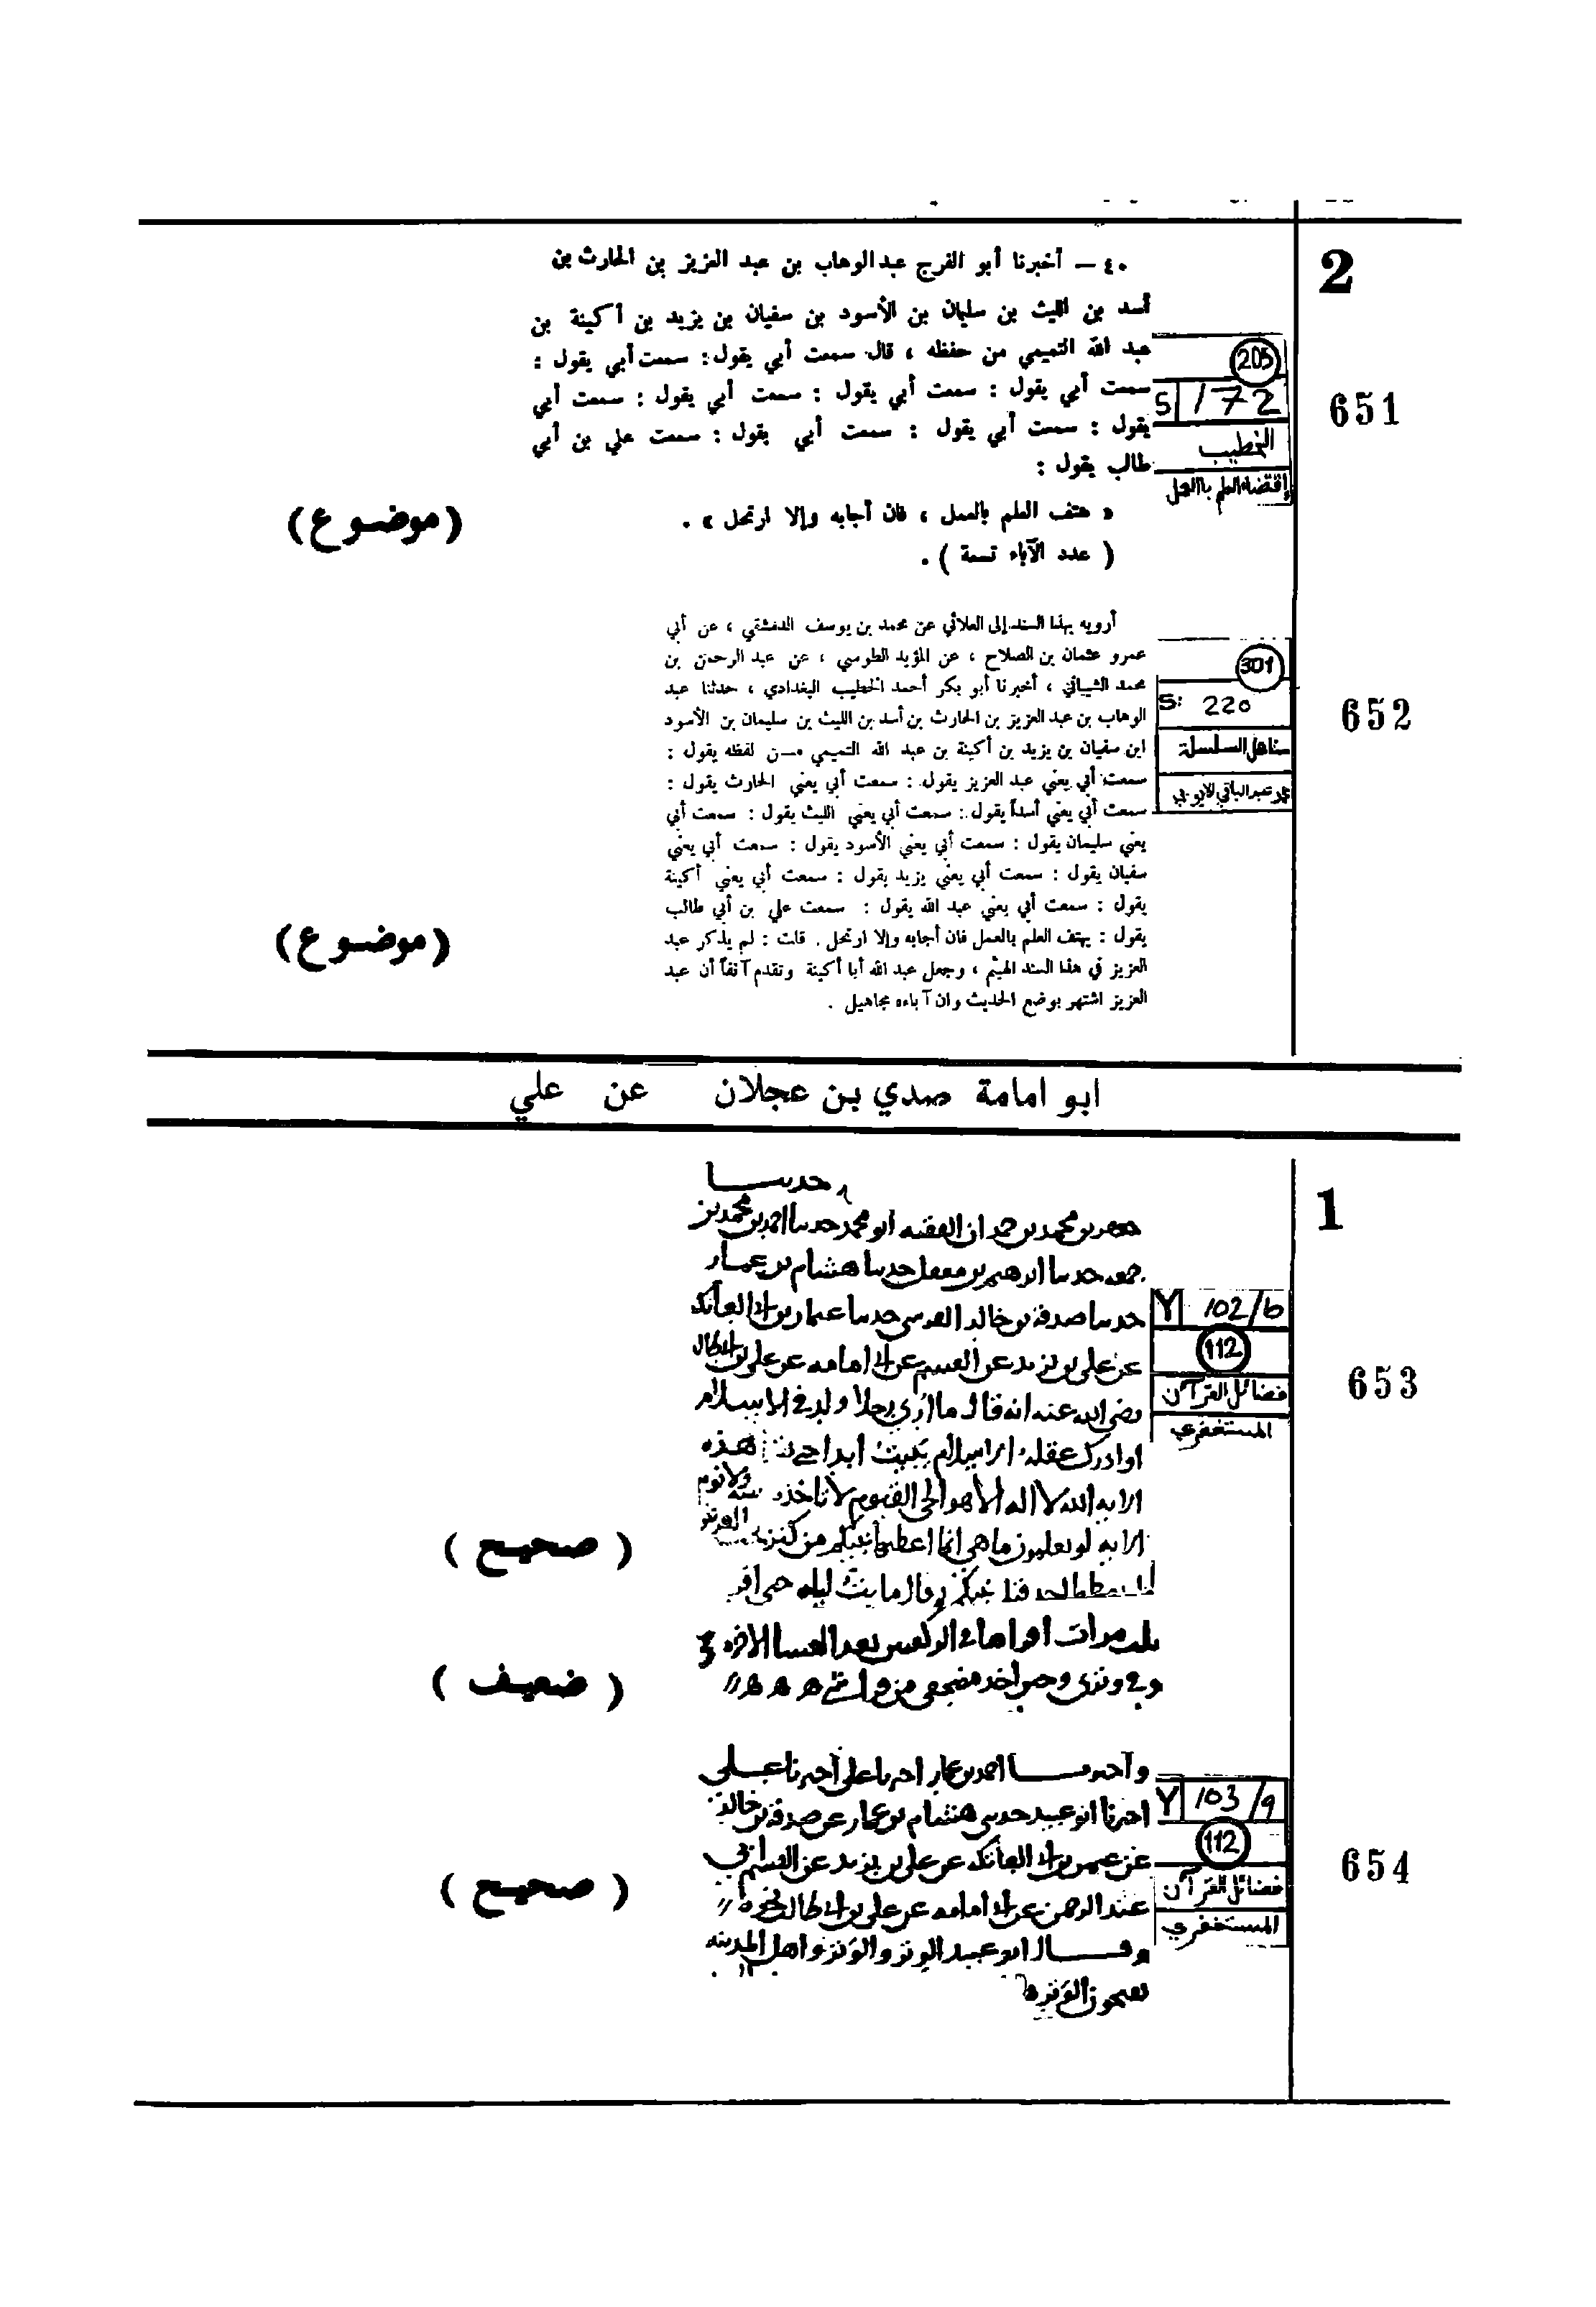 2
٤٠ – أخبرنا أبو الفرج عبد الوهاب بن عبد العزيز بن الحارث بن
أسد بن الليث بن سليمان بن الأسود بن سفيان بن يزيد بن أكينة بن
عبد الله التميمي من حفظه ، قال سمعت أبي يقول : سمعت أبي يقول :
سمعت أبي يقول : سمعت أبي يقول : سمعت أبي يقول : سمعت أبي
يقول : سمعت أبي يقول : سمعت أبي يقول : سمعت علي بن أبي
طالب يقول :
« هتف العلم بالعمل ، فان أجابه وإلا ارتحل » .
( عدد الآباء تسعة ) .
(موضوع)
205
S 172
الخطيب
إقتضاء العلم بالعمل
651
أرويه بهذا السند إلى العلائي عن محمد بن يوسف الدمشقي ، عن أبي
عمرو عثمان بن الصلاح ، عن المؤيد الطوسي ، عن عبد الرحمن بن
محمد الشيباني ، أخبرنا أبو بكر أحمد الخطيب البغدادي ، حدثنا عبد
الوهاب بن عبد العزيز بن الحارث بن أسد بن الليث بن سليمان بن الأسود
ابن سفيان بن يزيد بن أكينة بن عبد الله التميمي من لفظه يقول :
سمعت أبي يعني عبد العزيز يقول : سمعت أبي يعني الحارث يقول :
سمعت أبي يعني أسداً يقول : سمعت أبي يعني الليث يقول : سمعت أبي
يعني سليمان يقول : سمعت أبي يعني الأسود يقول : سمعت أبي يعني
سفيان يقول : سمعت أبي يعني يزيد يقول : سمعت أبي يعني أكينة
يقول : سمعت أبي يعني عبد الله يقول : سمعت علي بن أبي طالب
يقول : يهتف العلم بالعمل فان أجابه وإلا ارتحل . قلت : لم يذكر عبد
العزيز في هذا السند الهيثم ، وجعل عبد الله أبا أكينة وتقدم آنفاً أن عبد
العزيز اشتهر بوضع الحديث وان آباءه مجاهيل .
(موضوع)
301
S: 220
مناهل السلسلة
محمد عبد الباقي الايوبي
652
ابو امامة صدي بن عجلان عن علي
1
حدثنا
جعفر بن محمد بن حمدان الفقيه ابو محمد حدثنا احمد بن محمد بن
حدثنا ابرهيم بن معقل حدثنا هشام بن عمار
حدثنا صدقة بن خالد القرشي حدثنا عثمان بن ابي العاتكة
عن علي بن يزيد عن القسم عن ابي امامه عن علي بن ابي طالب
رضي الله عنه انه قال ما أرى رجلا ولد في الاسلام
او ادرك عقله الاسلام يبيت ابدا حتى هذه
الايه الله لا اله الا هو الحي القيوم لا تاخذه سنة ولا نوم
الايه لو تعلمون ما هي انما اعطيها نبيكم من كنز تحت العرش
قبل نبيكم وقال ما بت ليله حتى اقر
ثلث مرات أقراها في الركعتين بعد العشا الاخره
وفي وتري وحين اخذ مضجعي من فراشي
( صحيح )
( ضعيف )
Y 102/b
112
فضائل القرآن
المستغفري
653
وأخبرنا احمد بن عمار اخبرنا علي أخبرنا علي
اخبرنا ابو عبيد حدثني هشام بن عمار عن صدقة بن خالد
عن ابي العاتكة عن علي بن يزيد عن القسم ابي
عبد الرحمن عن ابي أمامه عن علي بن ابي طالب نحوه
وقال ابو عبيد الوتر والوَتر واهل المدينه
( صحيح )
Y 103/a
112
فضائل القرآن
المستغفري
654